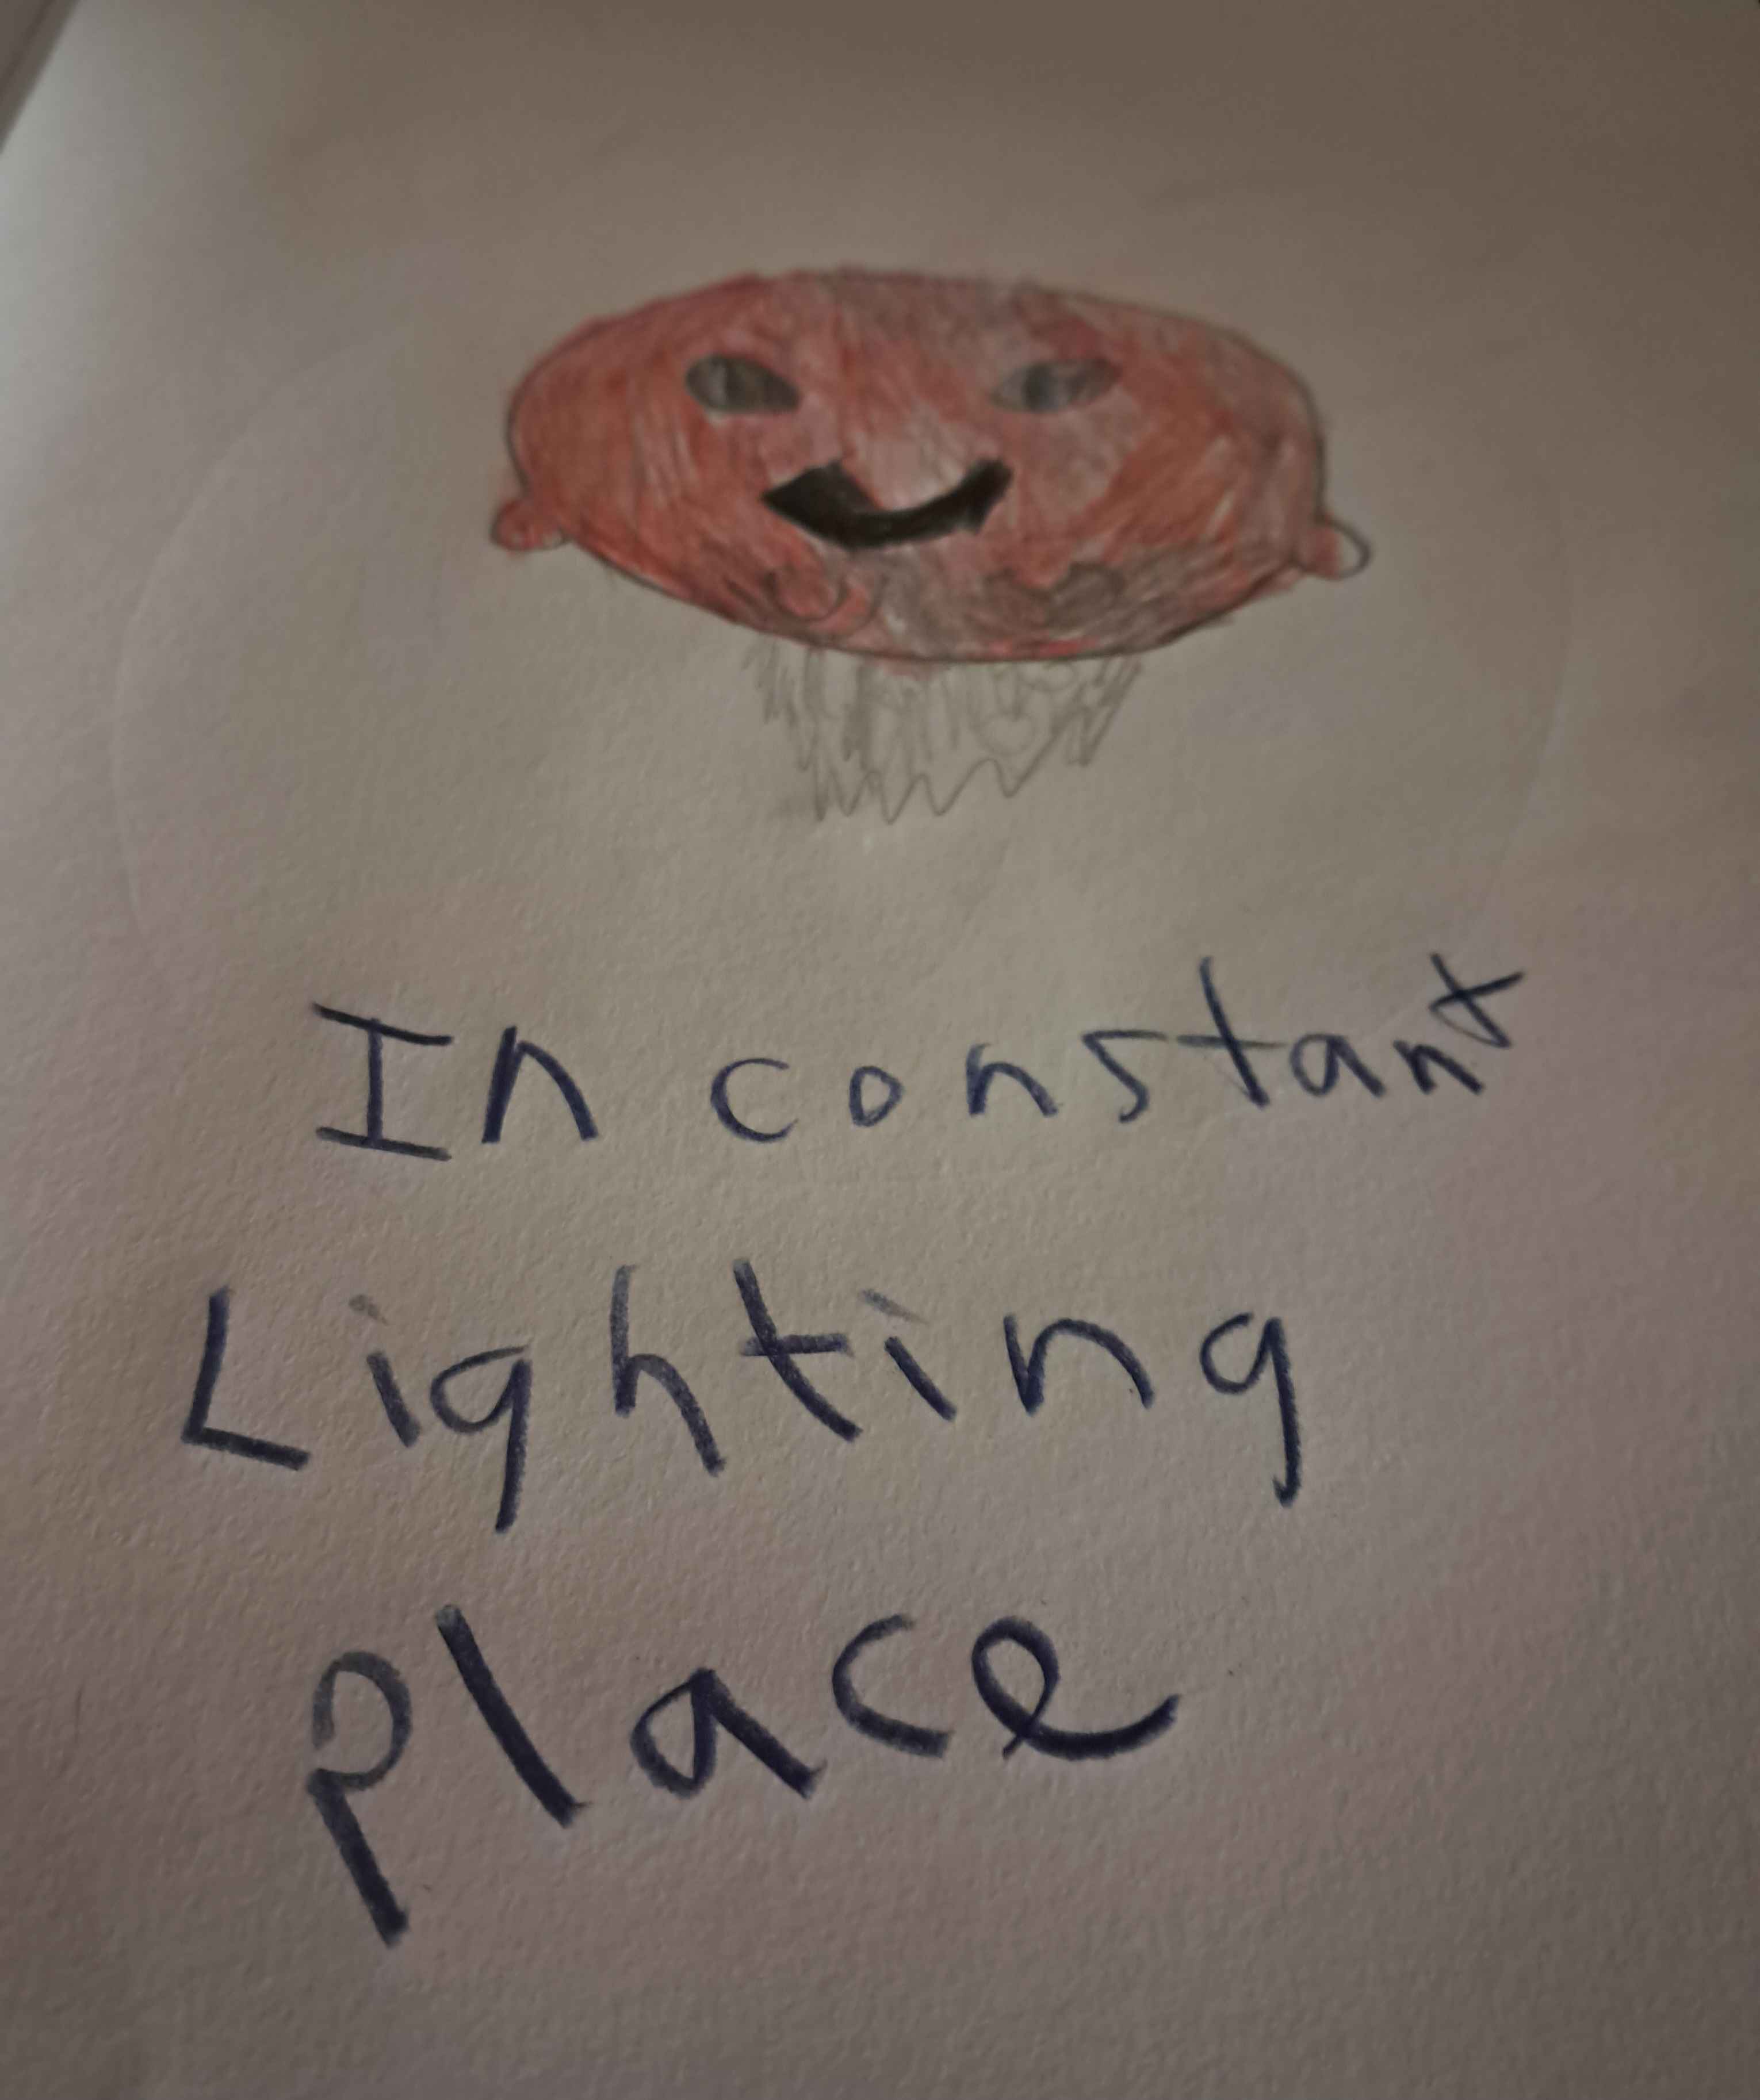 In constant
Lighting
place